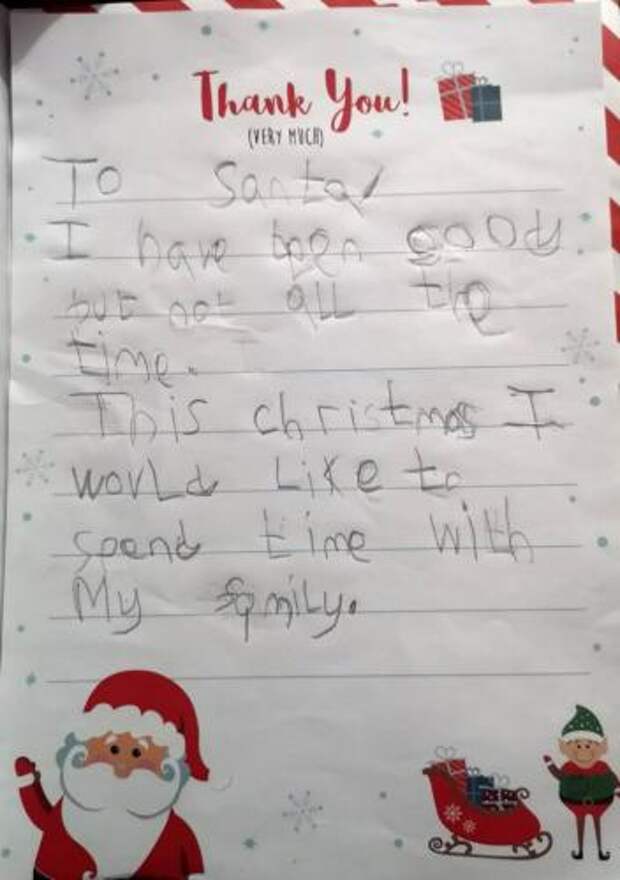 Thank You!
(VERY MUCH)
To Santa/
I have been good
but not all the
time.
This christmas I
would Like to
spend time with
My family.